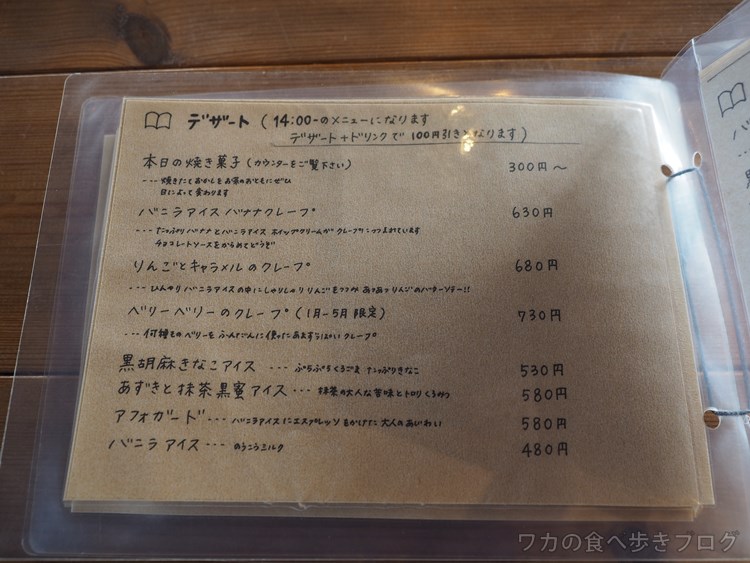 デザート (14:00-のメニューになります
デザート+ドリンクで 100円引きとなります)
本日の焼き菓子 (カウンターをご覧下さい) 300円~
--- 焼きたておかしをお茶のおともにぜひ
日によって変わります
バニラアイスバナナクレープ 630円
--- たっぷりバナナとバニラアイス ホイップクリームが クレープにつつまれています
チョコレートソースをからめてどうぞ
りんごとキャラメルのクレープ 680円
--- ひんやりバニラアイスの中にしゃりしゃりりんごを あつあつりんごのバターソテー!!
ベリーベリーのクレープ (1月-5月限定) 730円
--- 何種ものベリーを ふんだんに使った クレープ
黒胡麻きなこアイス --- ぷちぷちくろごま たっぷりきなこ 530円
あずきと抹茶黒蜜アイス --- 抹茶の大人な苦味とトロリくろみつ 580円
アフォガード --- バニラアイスにエスプレッソをかけた大人のあじわい 580円
バニラアイス --- のうこうミルク 480円
ワカの食べ歩きブログ